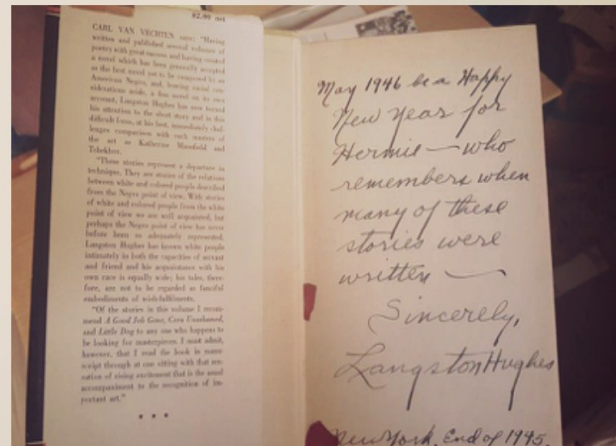 $2.00 net
CARL VAN VECHTEN says: "Having
written and published several volumes of
poetry with great success and having created
a novel which has been generally accepted
as the best novel yet to be composed by an
American Negro, and, leaving racial con-
siderations aside, a fine novel on its own
account, Langston Hughes has now turned
his attention to the short story and in this
difficult form, at his best, immediately chal-
lenges comparison with such masters of
the art as Katherine Mansfield and
Tchekhov.
"These stories represent a departure in
technique. They are stories of the relations
between white and colored people described
from the Negro point of view. With stories
of white and colored people from the white
point of view we are well acquainted, but
perhaps the Negro point of view has never
before been so adequately represented.
Langston Hughes has known white people
intimately in both the capacities of servant
and friend and his acquaintance with his
own race is equally wide; his tales, there-
fore, are not to be regarded as fanciful
embodiments of wish-fulfilments.
"Of the stories in this volume I recom-
mend A Good Job Gone, Cora Unashamed,
and Little Dog to any one who happens to
be looking for masterpieces. I must admit,
however, that I read the book in manu-
script through at one sitting with that sen-
sation of rising excitement that is the usual
accompaniment to the recognition of im-
portant art."
* * *
May 1946 be a Happy
New Year for
Hermie — who
remembers when
many of these
stories were
written —
Sincerely,
Langston Hughes
New York, End of 1945.